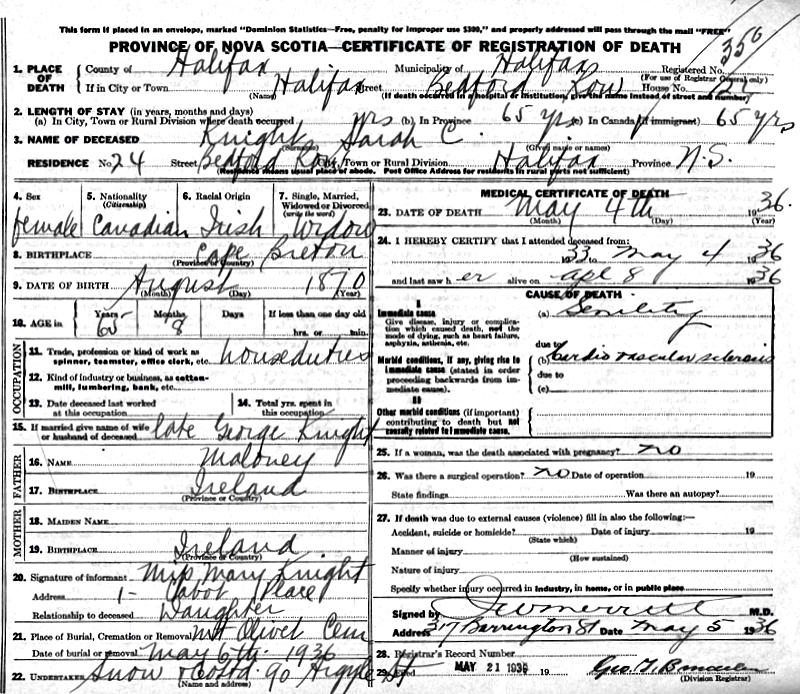 This form if placed in an envelope, marked "Dominion Statistics—Free, penalty for improper use $300," and properly addressed will pass through the mail "FREE"
PROVINCE OF NOVA SCOTIA—CERTIFICATE OF REGISTRATION OF DEATH
350
1. PLACE OF DEATH County of Halifax Municipality of Halifax Registered No.
(For use of Registrar General only)
If in City or Town Halifax Street Bedford Row House No.
(Name) (If death occurred in a hospital or institution, give the name instead of street and number)
2. LENGTH OF STAY (in years, months and days)
(a) In City, Town or Rural Division where death occurred yrs (b) In Province 65 yrs (c) In Canada (if immigrant) 65 yrs
3. NAME OF DECEASED Knight Sarah C.
(Surname) (Given name or names)
RESIDENCE No. 24 Street Bedford Row City, Town or Rural Division Halifax Province N.S.
(Residence means usual place of abode. Post Office Address for residents in rural parts not sufficient)
4. Sex female
5. Nationality (Citizenship) Canadian
6. Racial Origin Irish
7. Single, Married, Widowed or Divorced (write the word) Widow
8. BIRTHPLACE Cape Breton
(Province or Country)
9. DATE OF BIRTH August 1870
(Month) (Day) (Year)
10. AGE in Years 65 Months 8 Days If less than one day old hrs. or min.
OCCUPATION
11. Trade, profession or kind of work as spinner, teamster, office clerk, etc. houseduties
12. Kind of industry or business, as cotton-mill, lumbering, bank, etc.
13. Date deceased last worked at this occupation
14. Total yrs. spent in this occupation
15. If married give name of wife or husband of deceased late George Knight
FATHER
16. NAME Maloney
17. BIRTHPLACE Ireland
(Province or Country)
MOTHER
18. MAIDEN NAME
19. BIRTHPLACE Ireland
(Province or Country)
20. Signature of informant Miss Mary Knight
Address 1- Cabot Place
Relationship to deceased Daughter
21. Place of Burial, Cremation or Removal Mt Olivet Cem
Date of burial or removal May 6th 1936
22. UNDERTAKER Snow & Co Ltd. 90 Argyle St
(Name and address)
MEDICAL CERTIFICATE OF DEATH
23. DATE OF DEATH May 4th 1936.
(Month) (Day) (Year)
24. I HEREBY CERTIFY that I attended deceased from:
1933 to May 4 1936
and last saw her alive on apl 8 1936
CAUSE OF DEATH
I
Immediate cause
Give disease, injury or complication which caused death, not the mode of dying, such as heart failure, asphyxia, asthenia, etc.
(a) Senility
due to
Morbid conditions, if any, giving rise to immediate cause (stated in order proceeding backwards from immediate cause).
(b) Cardio vascular sclerosis
due to
(c)
II
Other morbid conditions (if important) contributing to death but not causally related to immediate cause.
25. If a woman, was the death associated with pregnancy? no
26. Was there a surgical operation? no Date of operation 19
State findings Was there an autopsy?
27. If death was due to external causes (violence) fill in also the following:—
Accident, suicide or homicide? Date of injury 19
(State which)
Manner of injury
(How sustained)
Nature of injury
Specify whether injury occurred in industry, in home, or in public place
Signed by M.D.
Address 317 Barrington St Date May 5 1936
28. Registrar's Record Number
29. Filed MAY 21 1936 19
(Division Registrar)